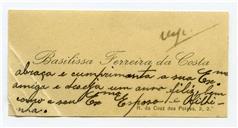 Basilissa Ferreira da Costa
abraça e cumprimenta a sua Exma
amiga e deseja um anno feliz bem
como a seu Exmo Esposo e Filhi-
nha.
R. da Cruz dos Poyaes, 2, 2.º